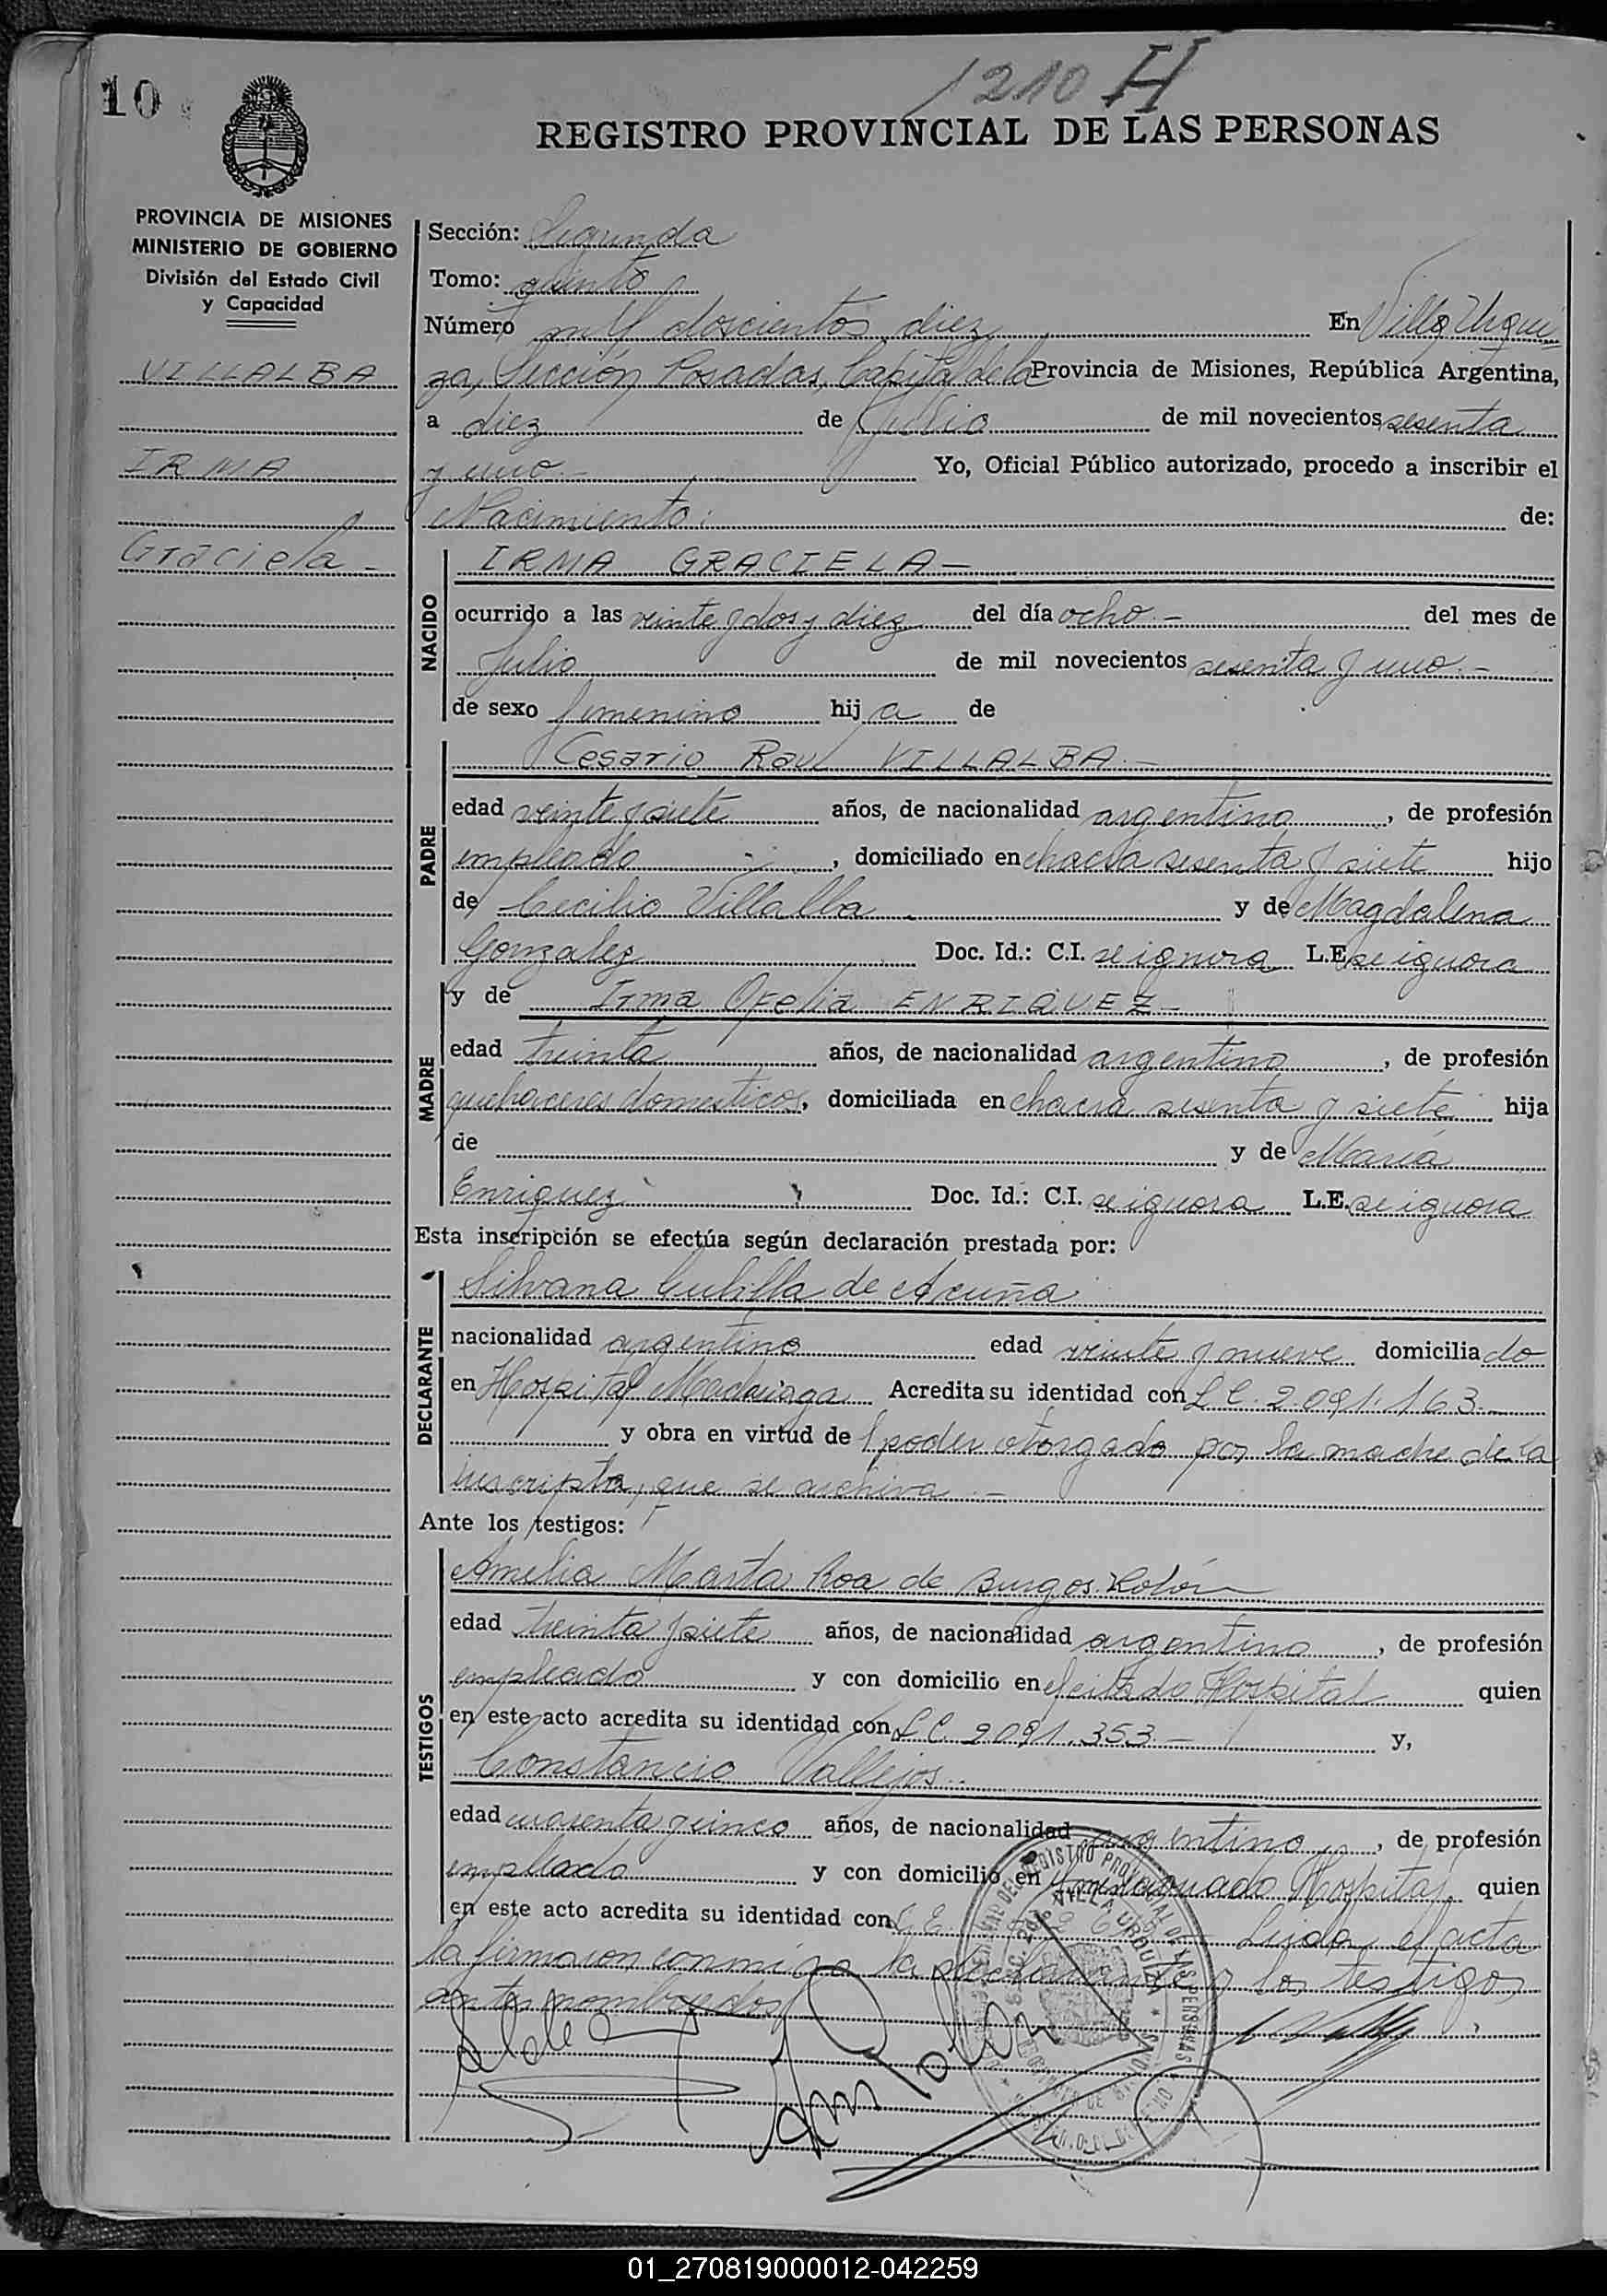 10
1210 H
REGISTRO PROVINCIAL DE LAS PERSONAS
PROVINCIA DE MISIONES
MINISTERIO DE GOBIERNO
División del Estado Civil
y Capacidad
VILLALBA
IRMA
Graciela -
Sección: Segunda
Tomo: quinto
Número mil doscientos diez En Villa Urqui
za, Sección Posadas, Capital de la Provincia de Misiones, República Argentina,
a diez de Julio de mil novecientos sesenta
y uno.- Yo, Oficial Público autorizado, procedo a inscribir el
Nacimiento: de:
NACIDO
IRMA GRACIELA -
ocurrido a las veinte y dos y diez del día ocho.- del mes de
Julio de mil novecientos sesenta y uno.-
de sexo femenino hij a de
PADRE
Cesario Raul VILLALBA.-
edad veinte y siete años, de nacionalidad argentina, de profesión
empleado, domiciliado en chacra sesenta y siete hijo
de Cecilio Villalba y de Magdalena
Gonzalez Doc. Id.: C.I. se ignora L.E. se ignora
MADRE
y de Irma Ofelia ENRIQUEZ -
edad treinta años, de nacionalidad argentina, de profesión
quehaceres domesticos, domiciliada en chacra sesenta y siete hija
de y de María
Enriquez Doc. Id.: C.I. se ignora L.E. se ignora
Esta inscripción se efectúa según declaración prestada por:
DECLARANTE
Silvana de Acuña
nacionalidad argentina edad veinte y nueve domiciliado
en Hospital Madariaga Acredita su identidad con L C. 2.091.163.-
y obra en virtud del poder otorgado por la madre de la
inscripta, que se archiva.-
Ante los testigos:
TESTIGOS
Amelia Marta Roa de Burgos
edad treinta y siete años, de nacionalidad argentina, de profesión
empleado y con domicilio en el citado Hospital quien
en este acto acredita su identidad con L C. 2091.353.- y,
Constancio Vallejos.
edad cuarenta y cinco años, de nacionalidad argentino, de profesión
empleado y con domicilio en el Hospital, quien
en este acto acredita su identidad con L.E. Leida el acta
la firmaron conmigo la declarante y los testigos
antes nombrados
VILLA URQUIZA
01_270819000012-042259